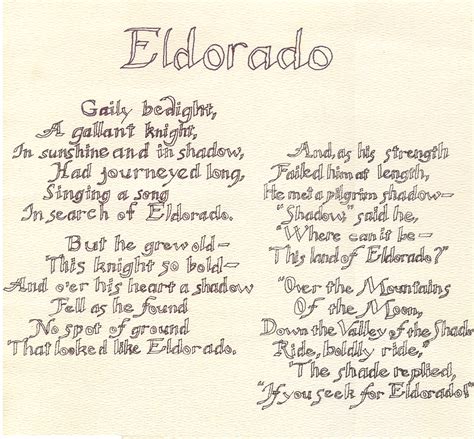 Eldorado
Gaily bedight,
A gallant knight,
In sunshine and in shadow,
Had journeyed long,
Singing a song
In search of Eldorado.
But he grew old—
This knight so bold—
And o'er his heart a shadow
Fell as he found
No spot of ground
That looked like Eldorado.
And, as his strength
Failed him at length,
He met a pilgrim shadow—
"Shadow," said he,
"Where can it be—
This land of Eldorado?"
"Over the Mountains
Of the Moon,
Down the Valley of the Shado
Ride, boldly ride,"
The shade replied,
"If you seek for Eldorado!"